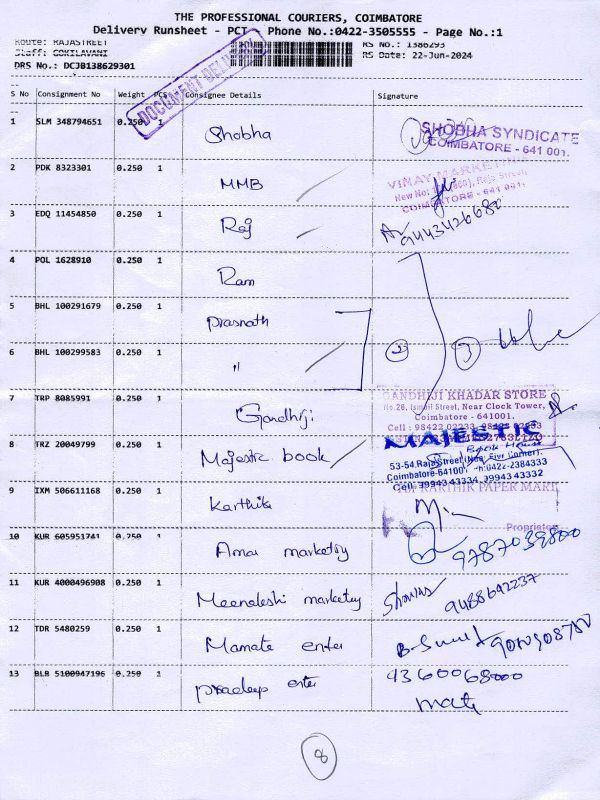 THE PROFESSIONAL COURIERS, COIMBATORE
Delivery Runsheet - PCT - Phone No.:0422-3505555 - Page No.:1
Route: RAJASTREET RS No.: 1386293
Staff: GOKILAVANI RS Date: 22-Jun-2024
DRS No.: DCJB138629301
DOCUMENT DELIVERY
S No Consignment No Weight PCS Consignee Details Signature
1 SLM 348794651 0.250 1 Shobha SHOBHA SYNDICATE
COIMBATORE - 641 001.
2 PDK 8323301 0.250 1 MMB VINAY MARKETING
New No: Raja Street,
COIMBATORE - 641 001.
3 EDQ 11454850 0.250 1 Raj 9443426680
4 POL 1628910 0.250 1 Ram
5 BHL 100291679 0.250 1 Prasnath
6 BHL 100299583 0.250 1 " 2 3
7 TRP 8085991 0.250 1 Gandhiji GANDHIJI KHADAR STORE
No.26, Ismail Street, Near Clock Tower,
Coimbatore - 641001.
Cell : 98422 02233
8 TRZ 20049799 0.250 1 Majestic book MAJESTIC
53-54 Raja Street (Near Five Corner),
Coimbatore-641001 0422-2384333
Cell: 39943 43334, 39943 43332
9 IXM 506611168 0.250 1 Karthik KARTHIK PAPER MART
Proprietor
10 KUR 605951741 0.250 1 Amar marketing 9787039800
11 KUR 4000496908 0.250 1 Meenakshi marketing 9488692237
12 TDR 5480259 0.250 1 Mamata enter
13 BLB 5100947196 0.250 1 pradeep enter 9360068000
mate
8